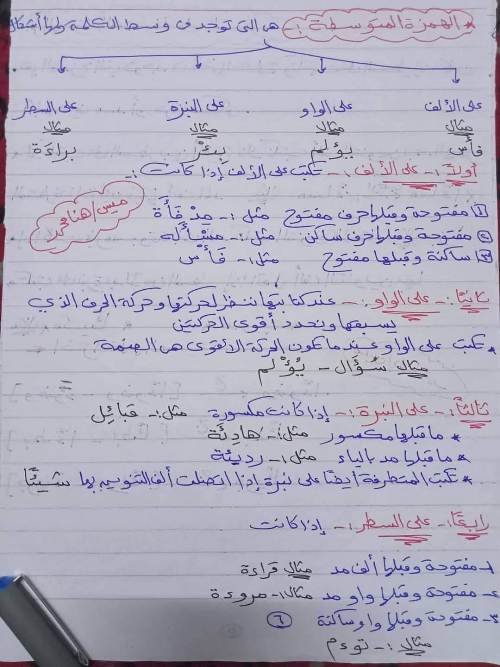 * الهمزة المتوسطة :- هى التى توجد فى وسط الكلمة ولها أشكال
على الألف على الواو على النبرة على السطر
مثال مثال مثال مثال
فأس يؤلم بِئْر براءَة
أولاً :- على الألف :- تكتب على الألف إذا كانت :-
ميس/هنا محمد
١ مفتوحة وقبلها حرف مفتوح مثل :- مِدْفَأَة
٢ مفتوحة وقبلها حرف ساكن مثل :- مَسْأَلة
٣ ساكنة وقبلها مفتوح مثل :- فَأْس
ثانيًا :- على الواو :- عند كتابتها ننظر لحركتها وحركة الحرف الذي
يسبقها ونحدد أقوى الحركتين
* تكتب على الواو عندما تكون الحركة الأقوى هى الضمة
مثال سُؤَال - يُؤْلم
ثالثًا :- على النبرة :- إذا كانت مكسورة مثل :- قبائِل
* ما قبلها مكسور مثل :- هادِئَة
* ما قبلها مد بالياء مثل :- رديئة
* تكتب المتطرفة أيضًا على نبرة إذا اتصلت ألف التنوين بها شيئًا
رابعًا :- على السطر :- إذا كانت
١- مفتوحة وقبلها ألف مد مثال قراءة
٢- مفتوحة وقبلها واو مد مثال :- مروءة
٣- مفتوحة وقبلها واو ساكنة ٦
مثال :- توءم